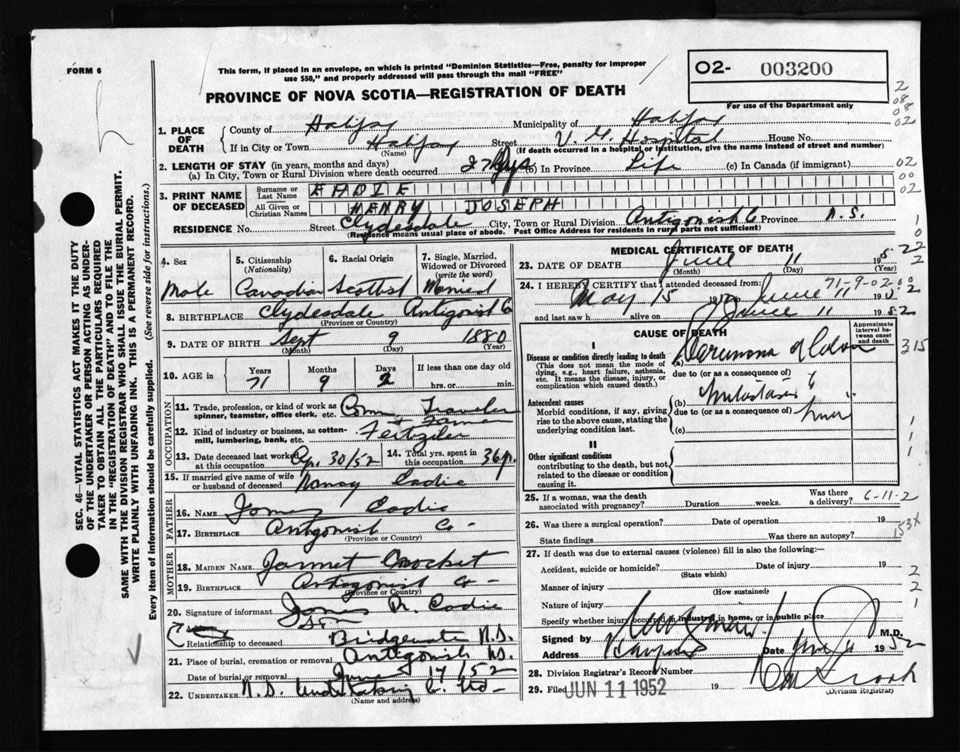 FORM 6
This form, if placed in an envelope, on which is printed "Dominion Statistics—Free, penalty for improper
use $50," and properly addressed will pass through the mail "FREE"
02- 003200
For use of the Department only
PROVINCE OF NOVA SCOTIA—REGISTRATION OF DEATH
1. PLACE OF DEATH { County of Halifax Municipality of Halifax
If in City or Town Halifax (Name) Street V. G. Hospital House No.
(If death occurred in a hospital or institution, give the name instead of street and number)
2. LENGTH OF STAY (in years, months and days)
(a) In City, Town or Rural Division where death occurred (b) In Province Life (c) In Canada (if immigrant)
3. PRINT NAME OF DECEASED { Surname or Last Name EADIE
All Given or Christian Names HENRY JOSEPH
RESIDENCE No. Street Clydesdale City, Town or Rural Division Antigonish Co Province N.S.
(Residence means usual place of abode. Post Office Address for residents in rural parts not sufficient)
4. Sex Male
5. Citizenship (Nationality) Canadian
6. Racial Origin
7. Single, Married, Widowed or Divorced (write the word) Married
8. BIRTHPLACE Clydesdale Antigonish Co
(Province or Country)
9. DATE OF BIRTH Sept 9 1880
(Month) (Day) (Year)
10. AGE in { Years 71 Months 9 Days 2 If less than one day old hrs. or min.
OCCUPATION
11. Trade, profession, or kind of work as spinner, teamster, office clerk, etc. Com Traveler
& Farmer
12. Kind of industry or business, as cotton-mill, lumbering, bank, etc. Fertilizer
13. Date deceased last worked at this occupation Ap. 30/52
14. Total yrs. spent in this occupation 36 yr.
15. If married give name of wife or husband of deceased Nancy Eadie
FATHER
16. NAME James Eadie
17. BIRTHPLACE Antigonish Co-
(Province or Country)
MOTHER
18. MAIDEN NAME Jannet Crocket
19. BIRTHPLACE Antigonish Co-
(Province or Country)
20. Signature of informant James R. Eadie
Son
Relationship to deceased Bridgewater N.S.
21. Place of burial, cremation or removal Antigonish NS.
Date of burial or removal June 14/52
22. UNDERTAKER N.S. Undertaking Co. Ltd-
(Name and address)
MEDICAL CERTIFICATE OF DEATH
23. DATE OF DEATH June 11 1952
(Month) (Day) (Year)
24. I HEREBY CERTIFY that I attended deceased from: 71-9-02
May 15 to June 11 1952
and last saw h alive on June 11 1952
CAUSE OF DEATH
Approximate interval between onset and death
I
Disease or condition directly leading to death
(This does not mean the mode of dying, e.g., heart failure, asthenia, etc. It means the disease, injury, or complication which caused death.)
(a) Carcinoma of Colon
due to (or as a consequence of)
Antecedent causes
Morbid conditions, if any, giving rise to the above cause, stating the underlying condition last.
(b) Metastases
due to (or as a consequence of) liver
(c)
II
Other significant conditions
contributing to the death, but not related to the disease or condition causing it.
25. If a woman, was the death associated with pregnancy? Duration weeks. Was there a delivery? 6-11-2
26. Was there a surgical operation? Date of operation 19
State findings Was there an autopsy?
27. If death was due to external causes (violence) fill in also the following:—
Accident, suicide or homicide? (State which) Date of injury 19
Manner of injury (How sustained)
Nature of injury
Specify whether injury occurred in industry, in home, or in public place
Signed by M.D.
Address Date 1952
28. Division Registrar's Record Number
29. Filed JUN 11 1952 19
(Division Registrar)
SEC. 46—VITAL STATISTICS ACT MAKES IT THE DUTY
OF THE UNDERTAKER OR PERSON ACTING AS UNDER-
TAKER TO OBTAIN ALL THE PARTICULARS REQUIRED
IN THE "REGISTRATION OF DEATH" AND TO FILE THE
SAME WITH THE DIVISION REGISTRAR WHO SHALL ISSUE THE BURIAL PERMIT.
WRITE PLAINLY WITH UNFADING INK. THIS IS A PERMANENT RECORD.
Every item of information should be carefully supplied. (See reverse side for instructions.)